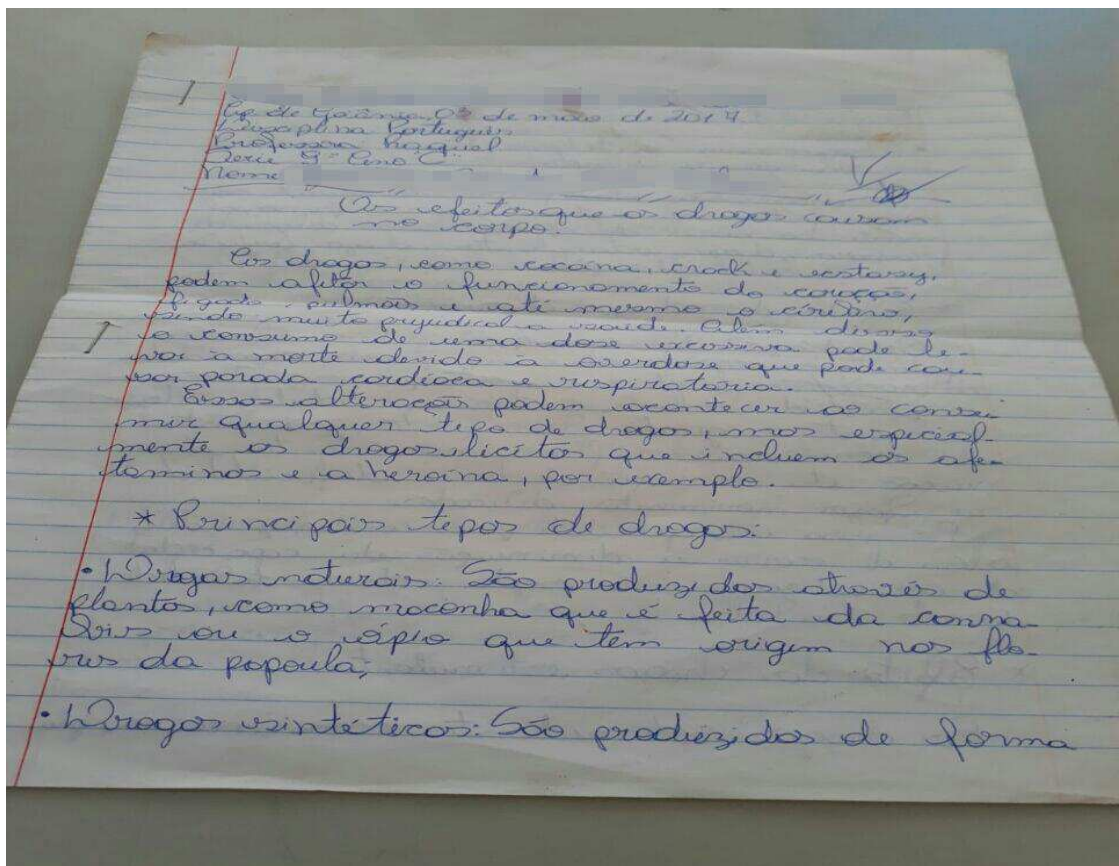 Ap. de Goiânia, 0 de maio de 2017.
Disciplina Português
Professora
Serie 9º Ano C
Nome
Os efeitos que as drogas causam
no corpo.
As drogas, como cocaína, crack e ecstasy,
podem afetar o funcionamento do coração,
fígado, pulmões e até mesmo o cérebro,
sendo muito prejudical a saúde. Além disso,
o consumo de uma dose excessiva pode le-
var à morte devido à overdose que pode cau-
sar parada cardíaca e respiratoria.
Essas alterações podem acontecer ao consu
mir qualquer tipo de drogas, mas especial-
mente as drogas ilícitas que incluem as afe-
taminas e a heroína, por exemplo.
* Principais tipos de drogas:
• Drogas naturais: São produzidas através de
plantas, como maconha que é feita da canna-
bis ou o ópio que tem origem nas flo-
res da papoula;
• Drogas sintéticas: São produzidas de forma